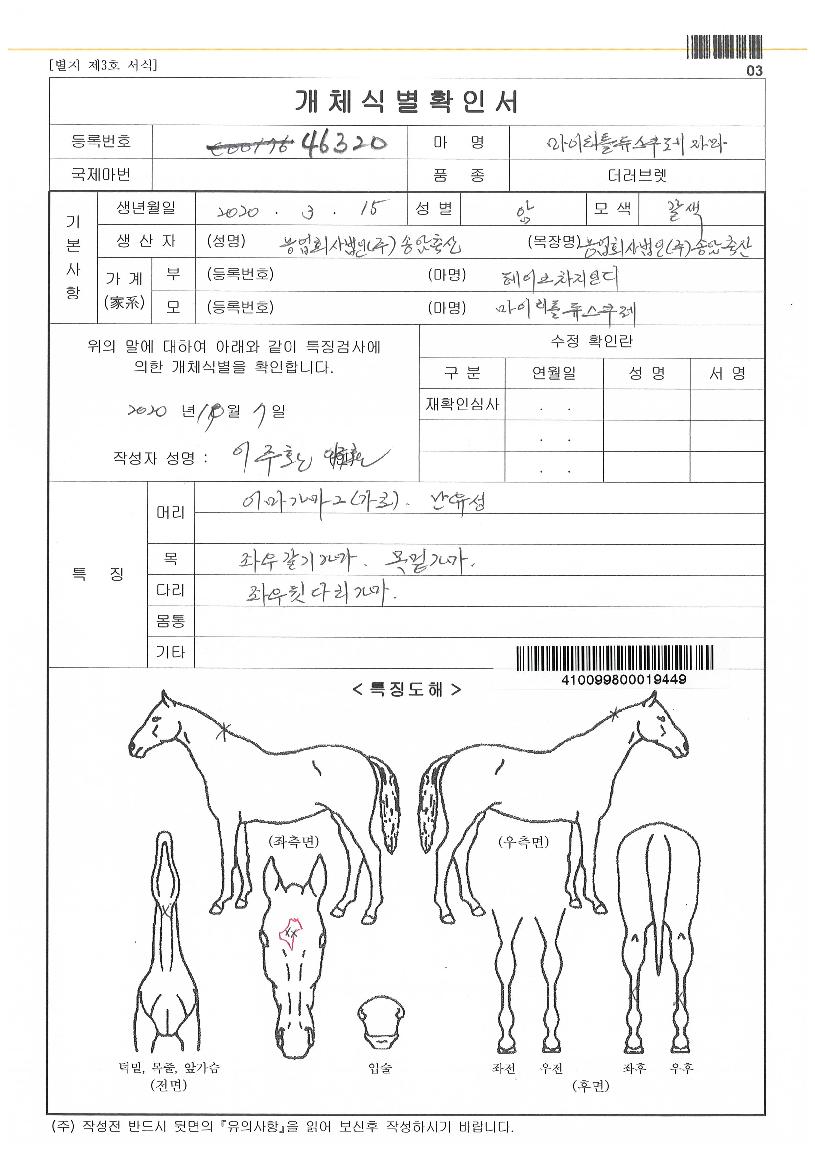 03
[별지 제3호 서식]
개체식별확인서
등록번호 46320 마 명 마이티틀듀스쿠레자마
국제마번 품 종 더러브렛
기본사항
생년월일 2020 . 3 . 15 성 별 암 모 색 갈색
생 산 자 (성명) 농업회사법인(주)송암축산 (목장명) 농업회사법인(주)송암축산
가 계 (家系)
부 (등록번호) (마명)
모 (등록번호) (마명)
위의 말에 대하여 아래와 같이 특징검사에
의한 개체식별을 확인합니다.
2020 년 10월 7일
작성자 성명 :
수정 확인란
구 분 연월일 성 명 서 명
재확인심사 . .
. .
. .
특 징
머리 이마가마2(가로). 난유성
목 좌우갈기가마. 목밑가마.
다리 좌우뒷다리가마.
몸통
기타
410099800019449
< 특징도해 >
(좌측면) (우측면)
턱밑, 목줄, 앞가슴 입술 좌전 우전 좌후 우후
(전면) (후면)
(주) 작성전 반드시 뒷면의 『유의사항』을 읽어 보신후 작성하시기 바랍니다.